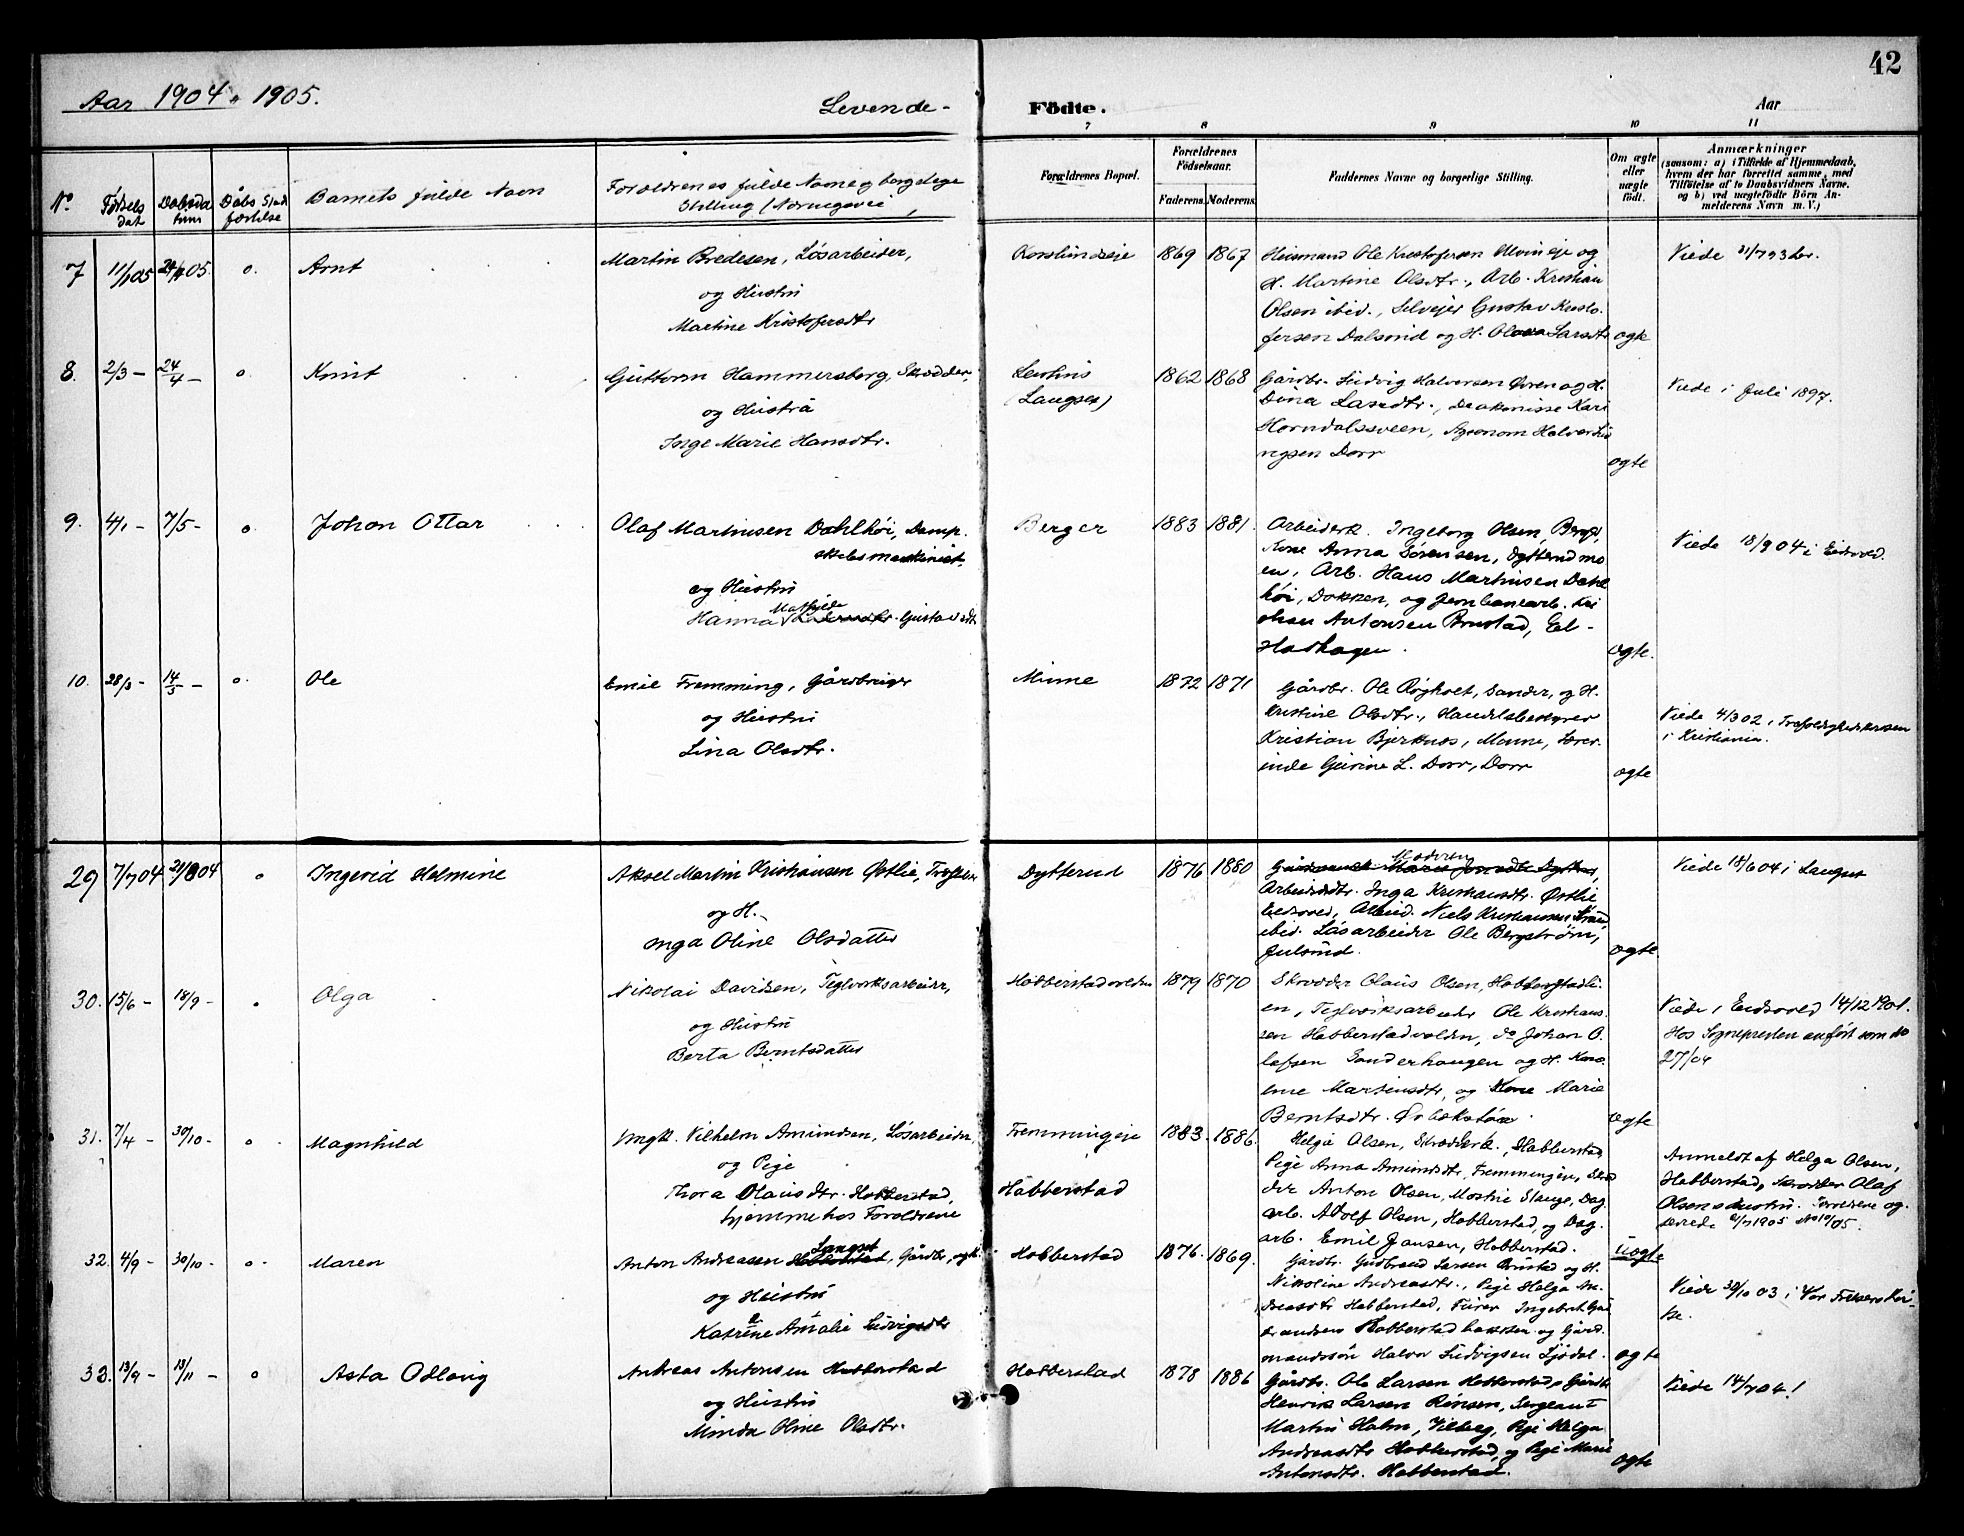 42
Aar 1904 & 1905.
Levende-
Födte.
Aar
7 8 9 10 11
No.
Fødsels dat
Daabsda tum
Dåbs Sted fæstelse
Barnets fulde Navn
Forældrenes fulde Navne og borgerlige
Stilling / Næringsvei
Forældrenes Bopæl.
Forældrenes Födselsaar.
Faderens. Moderens.
Faddernes Navne og borgerlige Stilling.
Om ægte eller uægte födt.
Anmærkninger
(saasom: a) i Tilfælde af Hjemmedaab,
hvem der har forrettet samme, med
Tilföielse af to Daabsvidners Navne.
og b) ved uægtefödte Börn An-
melderens Navn m. V.)
7 11/1 05 24/4 05. o. Arnt
Martin Bredesen, Løsarbeider,
og Hustru
Martine Kristofersdtr
Korslundseje 1869 1867
Husmand Ole Kristofersen Ulvin eje og
H. Martine Olsdtr., Arb. Kristian
Olsen ibid., Selvejer Gustav Kristo-
fersen Dalsrud og H. Olava Larsdtr
ægte
Viede 31/7 93 her.
8. 2/3 - 24/4 - o. Knut
Guttorm Hammersborg, Skrædder,
og Hustru
Inge Marie Hansdtr.
(Langset)
1862 1868
Gårdbr. Ludvig Halvorsen Ovren og H.
Dina Larsdtr., Deakonisse Kari
Horndalssveen, Agronom Halvor Lud
vigsen Dorr
ægte
Viede i Juli 1897.
9. 4/1 - 7/5 - o. Johan Ottar
Olaf Martinusen Dahlhøi, Damp.
skibsmaskinist.
og Hustru
Mathilde
Hanna Gustavsdtr
Berger 1883 1881.
Arbeiderk. Ingeborg Olsen, Berger,
Kone Anna Sørensen, Dytterud mo
en, Arb. Hans Martinusen Dahl
høi, Dokken, og Jernbanearb. Kri
stian Antonsen Brustad, El-
stadhagen.
ægte.
Viede 18/9 04 i Eidsvold.
10. 28/3 - 14/5 - o. Ole
Emil Fremming, Gårdbruger
og Hustru
Lina Olsdtr.
Minne 1872 1871
Gårdbr. Ole Røgholt, Sander, og H.
Kristine Olsdtr., Handelsbestyrer
Kristian Bjerknes, Minne, Lærer-
inde Gurine L. Dorr, Dorr
ægte
Viede 4/3 02 i Trefoldighedskirken
i Kristiania.
29 7/7 04 21/8 04 o Ingerid Helmine
Aksel Martin Kristiansen Østlie,
og H.
Inga Oline Olsdatter
Dytterud 1876 1880
Moderen
Arbeidsdtr. Inga Kristiansdtr. Østlie
Eidsvold, Arbeid. Niels Kristiansen
ibid. Løsarbeider Ole Bergstrøm,
Julsrud.
ægte.
Viede 18/6 04 i Langset
30. 15/6 - 18/9 - o Olga
Nikolai Davidsen, Teglverksarbeider,
og Hustru
Berta Berntsdatter
Habberstadvolden 1879 1870
Skrædder Olaus Olsen, Habberstadli-
en, Teglverksarbeider Ole Kristian-
sen Habberstadvolden, do Johan O-
lafsen Sanderhaugen og H. Karo-
line Martinusdtr, og Kone Marie
Berntsdtr.
ægte
Viede i Eidsvold 14/12 1901.
Hos Sognepresten anført som No
27/04
31. 7/4 - 30/10 - o Magnhild
Ungk. Vilhelm Amundsen, Løsarbeider
og Pige
Thora Olausdtr. Habberstad,
hjemme hos Forældrene
Fremmingeje 1883. 1886.
Habberstad
Helga Olsen, Skrædderk., Habberstad,
Pige Anna Amundsdtr, Fremmingeje, Skræd
der Anton Olsen, Mostue Stange, Dag
arb. Adolf Olsen, Habberstad, og Dag-
arb. Emil Jansen, Habberstad.
uægte
Anmeldt af Helga Olsen,
Habberstad, Skrædder Olaf
Olsens Hustru. Forældrene og-
No 10/05.
32. 4/9 - 30/10 - o Maren
Langset
Anton Andreasen Habberstad, Gårdbr., og
og Hustru
Katrine Amalie Ludvigsdtr
Habberstad 1876. 1869.
Gårdbr. Gudbrand Larsen Brustad og H.
Nikoline Andreasdtr., Pige Helga An-
dreasdtr Habberstad,
Habberstad bakken og Gård-
mandssøn Halvor Ludvigsen Ljødal.
ægte
Viede 30/10 03 i Vor Frelsers Kir-
ke.
33. 13/9 - 13/11 - o Asta Odlaug
Andreas Antonsen Habberstad
og Hustru
Minda Oline Olsdtr.
Habberstad 1878 1886
Gårdbr. Ole Larsen Habberstad, Gårdbr
Henrik Larsen Rensen, Sergeant
Martin Holm, Vilberg, Pige Helga
Andreasdtr Habberstad, og Pige Marie
Antonsdtr. Habberstad.
ægte
Viede 14/7 04!